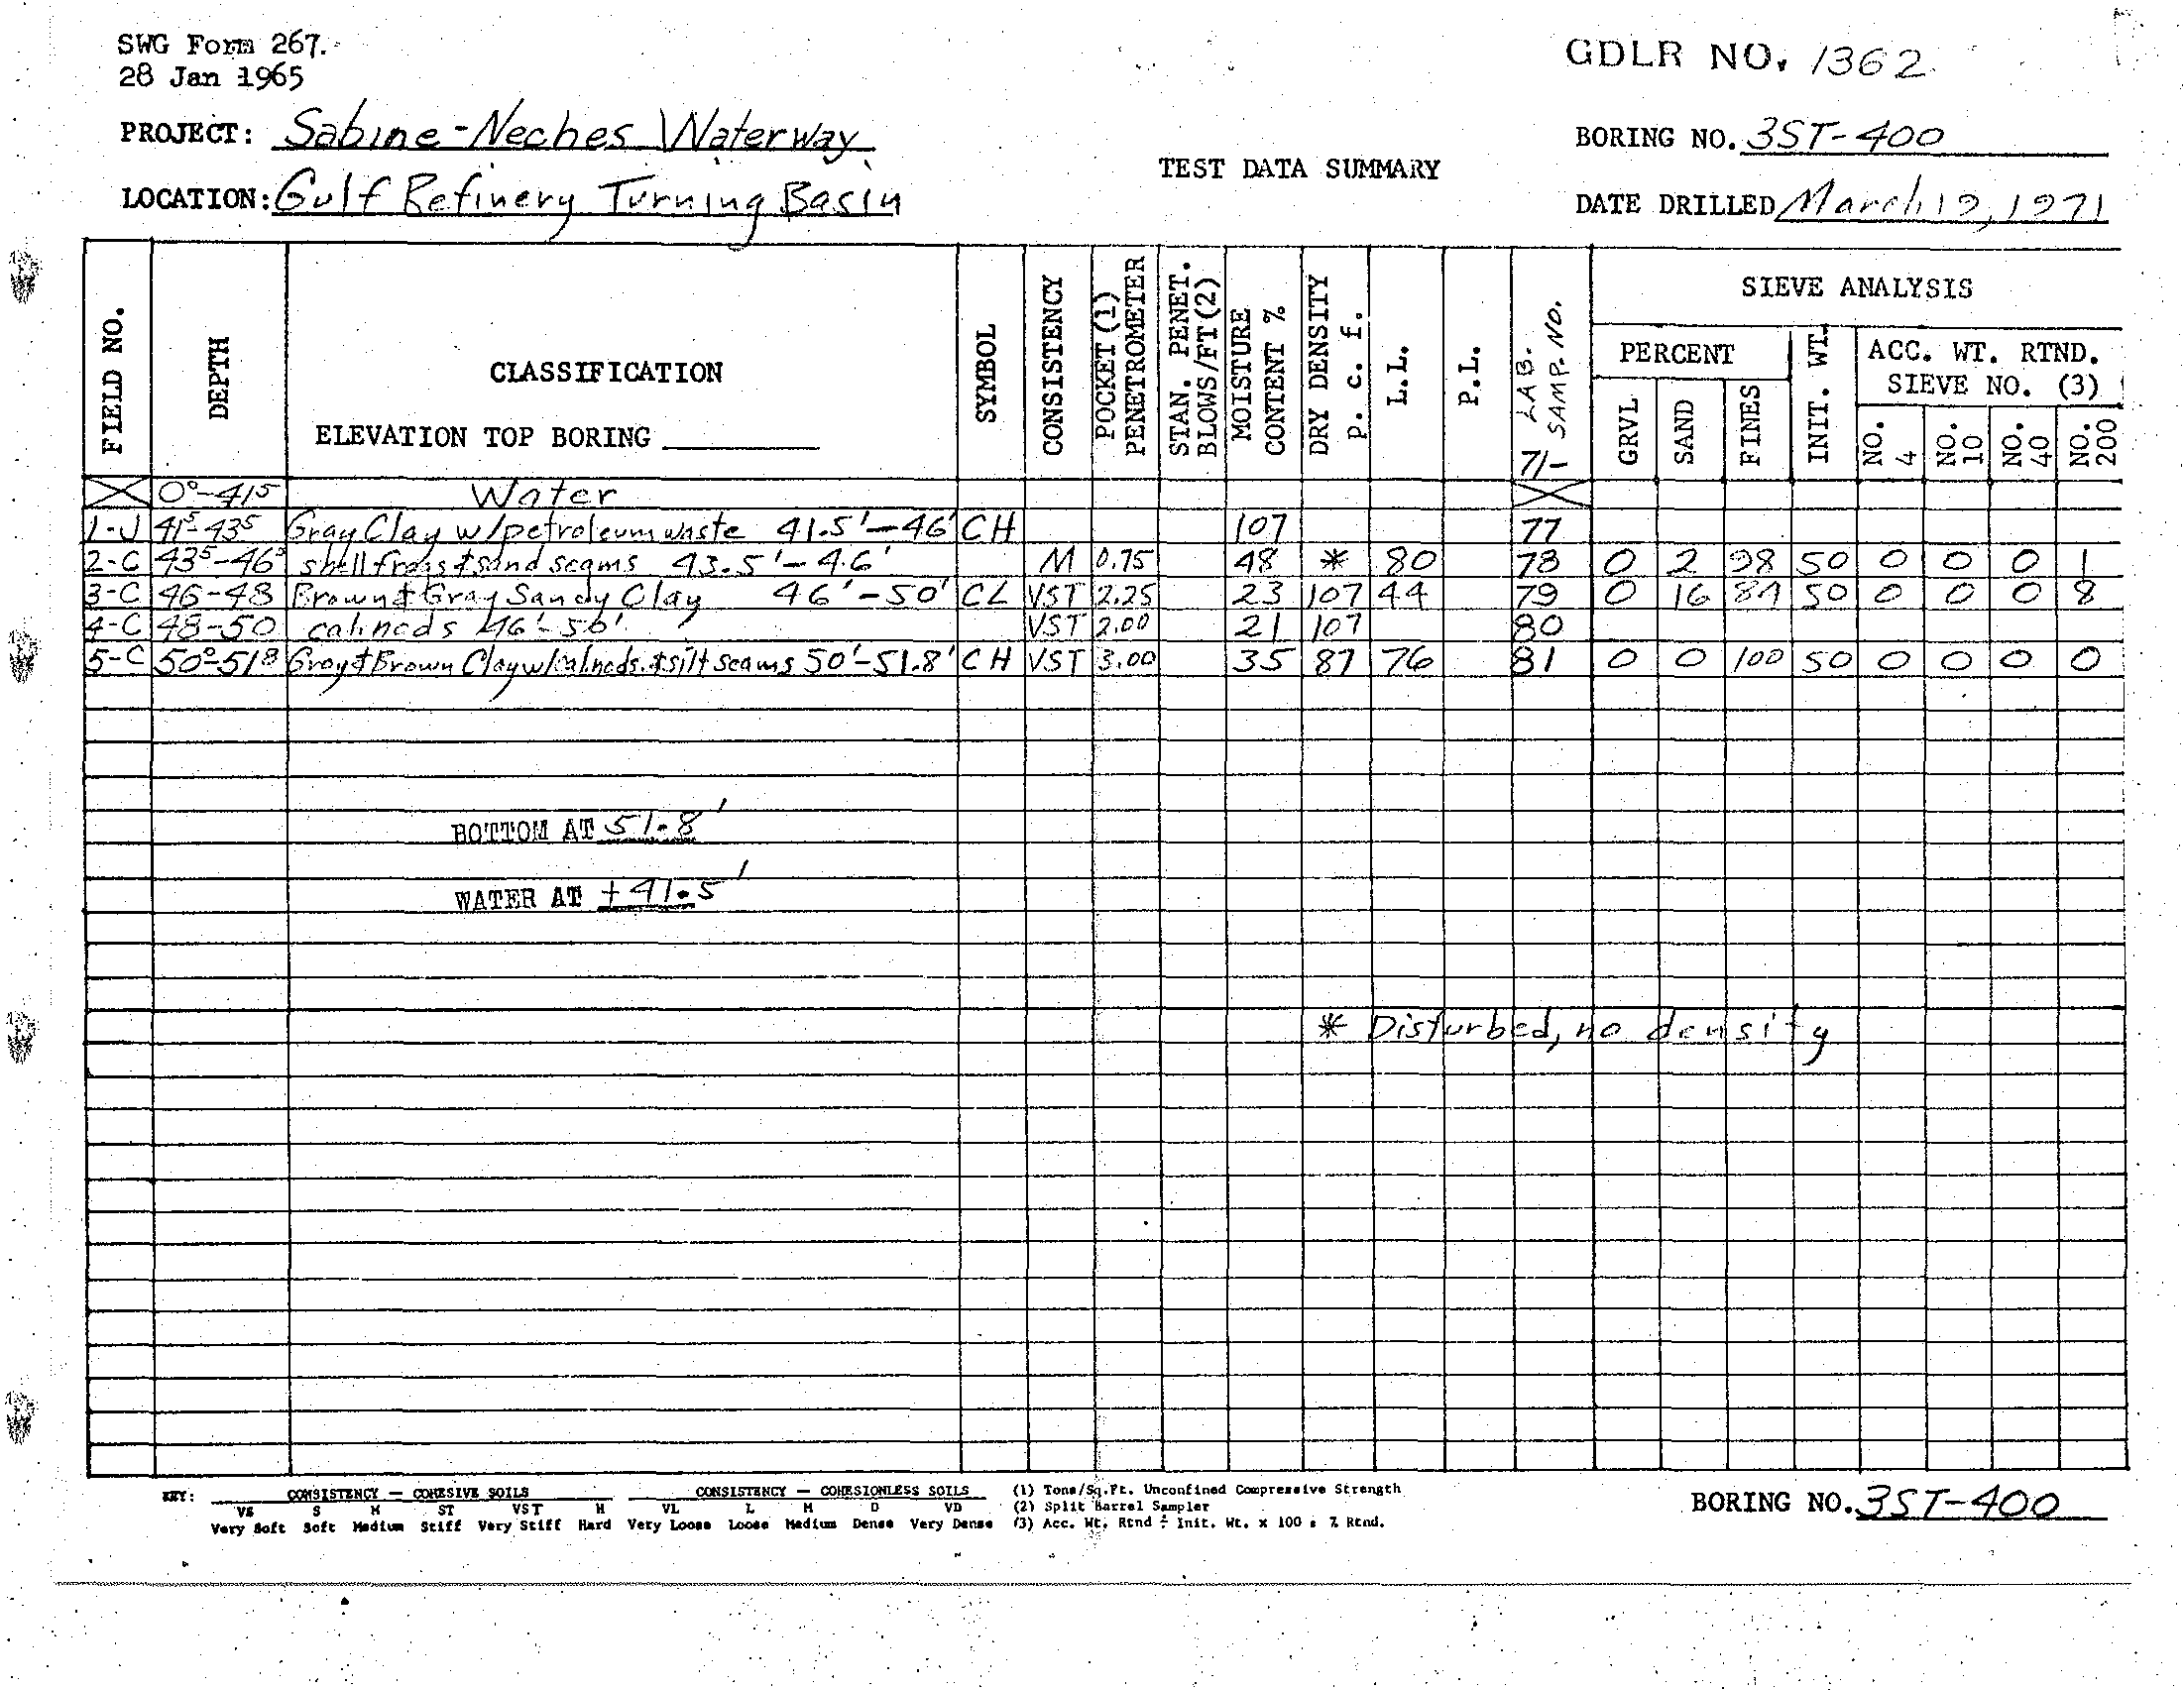 SWG Form 267.
28 Jan 1965
GDLR NO. 1362
PROJECT: Sabine-Neches Waterway
BORING NO. 3ST-400
TEST DATA SUMMARY
LOCATION: Gulf Refinery Turning Basin
DATE DRILLED March 19, 1971
FIELD NO. DEPTH CLASSIFICATION SYMBOL CONSISTENCY POCKET (1) PENETROMETER STAN. PENET. BLOWS/FT(2) MOISTURE CONTENT % DRY DENSITY p. c. f. L.L. P.L. LAB. SAMP. NO. 71-
ELEVATION TOP BORING
SIEVE ANALYSIS
PERCENT INIT. WT. ACC. WT. RTND. SIEVE NO. (3)
GRVL SAND FINES NO. 4 NO. 10 NO. 40 NO. 200
0⁰-41⁵ Water
1-J 41⁵-43⁵ Gray Clay w/petroleum waste 41.5'-46' CH 107 77
2-C 43⁵-46⁰ shell frags & sand seams 43.5'-46' M 0.75 48 * 80 78 0 2 98 50 0 0 0 1
3-C 46-48 Brown & Gray Sandy Clay 46'-50' CL VST 2.25 23 107 44 79 0 16 84 50 0 0 0 8
4-C 48-50 cal.nods 46'-50' VST 2.00 21 107 80
5-C 50⁰-51⁸ Gray & Brown Clay w/cal.nods. & silt seams 50'-51.8' CH VST 3.00 35 87 76 81 0 0 100 50 0 0 0 0
BOTTOM AT 51.8'
WATER AT +41.5'
* Disturbed, no density
KEY: CONSISTENCY — COHESIVE SOILS CONSISTENCY — COHESIONLESS SOILS (1) Tons/Sq.Ft. Unconfined Compressive Strength
VS S M ST VST H VL L M D VD (2) Split Barrel Sampler
Very Soft Soft Medium Stiff Very Stiff Hard Very Loose Loose Medium Dense Very Dense (3) Acc. Wt. Rtnd ÷ Init. Wt. x 100 = % Rtnd.
BORING NO. 3ST-400